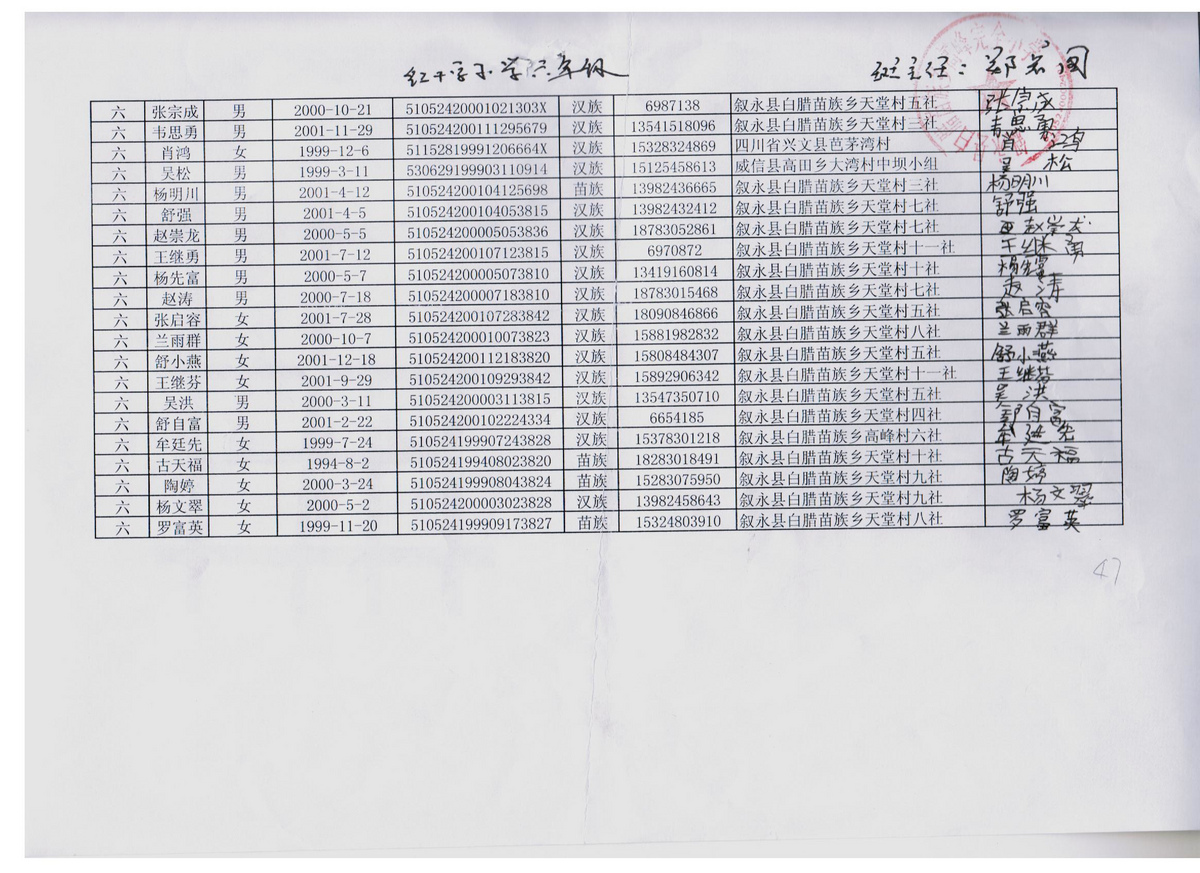 红十字小学六年级
班主任：郑
六 张宗成 男 2000-10-21 51052420001021303X 汉族 6987138 叙永县白腊苗族乡天堂村五社 张宗成
六 韦思勇 男 2001-11-29 510524200111295679 汉族 13541518096 叙永县白腊苗族乡天堂村三社 韦思勇
六 肖鸿 女 1999-12-6 51152819991206664X 汉族 15328324869 四川省兴文县芭茅湾村 肖鸿
六 吴松 男 1999-3-11 530629199903110914 汉族 15125458613 威信县高田乡大湾村中坝小组 吴松
六 杨明川 男 2001-4-12 510524200104125698 苗族 13982436665 叙永县白腊苗族乡天堂村三社 杨明川
六 舒强 男 2001-4-5 510524200104053815 汉族 13982432412 叙永县白腊苗族乡天堂村七社 舒强
六 赵崇龙 男 2000-5-5 510524200005053836 汉族 18783052861 叙永县白腊苗族乡天堂村七社 赵崇龙
六 王继勇 男 2001-7-12 510524200107123815 汉族 6970872 叙永县白腊苗族乡天堂村十一社 王继勇
六 杨先富 男 2000-5-7 510524200005073810 汉族 13419160814 叙永县白腊苗族乡天堂村十社 杨先富
六 赵涛 男 2000-7-18 510524200007183810 汉族 18783015468 叙永县白腊苗族乡天堂村七社 赵涛
六 张启容 女 2001-7-28 510524200107283842 汉族 18090846866 叙永县白腊苗族乡天堂村五社 张启容
六 兰雨群 女 2000-10-7 510524200010073823 汉族 15881982832 叙永县白腊苗族乡天堂村八社 兰雨群
六 舒小燕 女 2001-12-18 510524200112183820 汉族 15808484307 叙永县白腊苗族乡天堂村五社 舒小燕
六 王继芬 女 2001-9-29 510524200109293842 汉族 15892906342 叙永县白腊苗族乡天堂村十一社 王继芬
六 吴洪 男 2000-3-11 510524200003113815 汉族 13547350710 叙永县白腊苗族乡天堂村五社 吴洪
六 舒自富 男 2001-2-22 510524200102224334 汉族 6654185 叙永县白腊苗族乡天堂村四社 自富
六 牟廷先 女 1999-7-24 510524199907243828 汉族 15378301218 叙永县白腊苗族乡高峰村六社 牟廷先
六 古天福 女 1994-8-2 510524199408023820 苗族 18283018491 叙永县白腊苗族乡天堂村十社 古天福
六 陶婷 女 2000-3-24 510524199908043824 苗族 15283075950 叙永县白腊苗族乡天堂村九社 陶婷
六 杨文翠 女 2000-5-2 510524200003023828 汉族 13982458643 叙永县白腊苗族乡天堂村九社 杨文翠
六 罗富英 女 1999-11-20 510524199909173827 苗族 15324803910 叙永县白腊苗族乡天堂村八社 罗富英
47